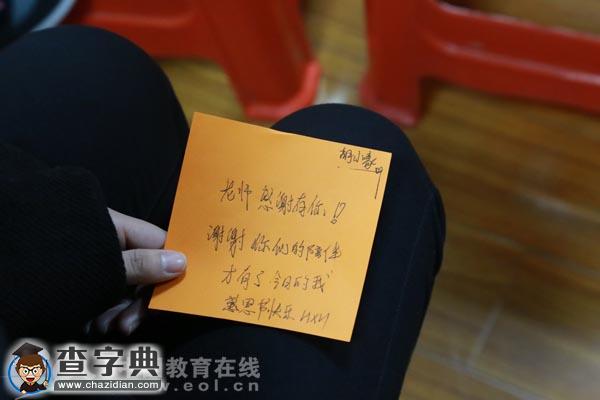 老师 感谢有你!
谢谢 你们的陪伴
才有了 今日的我
感恩节快乐
查字典 教育在线
www.chazidian.com
.eol.cn